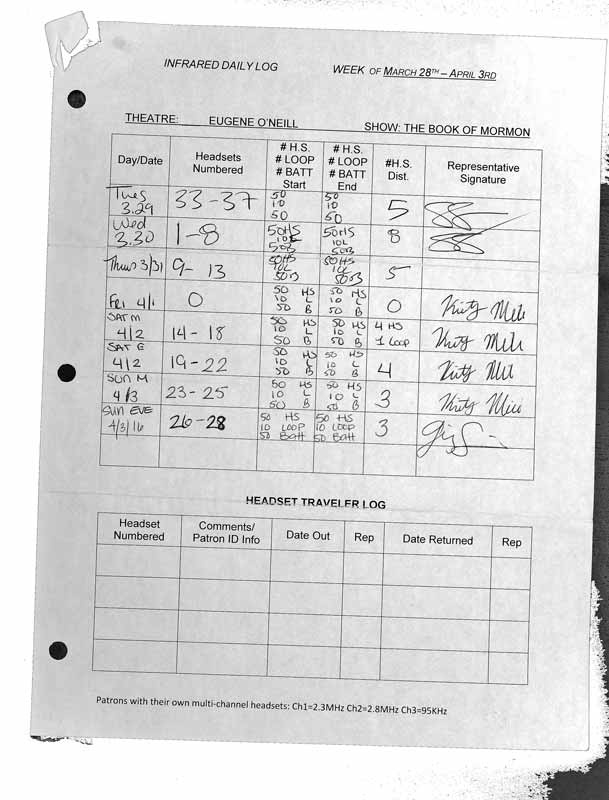 INFRARED DAILY LOG WEEK OF MARCH 28TH – APRIL 3RD
THEATRE: EUGENE O'NEILL SHOW: THE BOOK OF MORMON
Day/Date Headsets Numbered # H.S. # LOOP # BATT Start # H.S. # LOOP # BATT End #H.S. Dist. Representative Signature
Tues 3.29 33-37 50 10 50 50 10 50 5
Wed 3.30 1-8 50HS 10L 50B 50HS 10L 50B 8
Thurs 3/31 9-13 50HS 10L 50B 50HS 10L 50B 5
Fri 4/1 0 50 HS 10 L 50 B 50 HS 10 L 50 B 0
SAT M 4/2 14-18 50 HS 10 L 50 B 50 HS 10 L 50 B 4 HS 1 Loop
SAT E 4/2 19-22 50 HS 10 L 50 B 50 HS 10 L 50 B 4
SUN M 4/3 23-25 50 HS 10 L 50 B 50 HS 10 L 50 B 3
SUN EVE 4/3/16 26-28 50 HS 10 LOOP 50 Batt 50 HS 10 LOOP 50 Batt 3
HEADSET TRAVELER LOG
Headset Numbered Comments/ Patron ID Info Date Out Rep Date Returned Rep
Patrons with their own multi-channel headsets: Ch1=2.3MHz Ch2=2.8MHz Ch3=95KHz